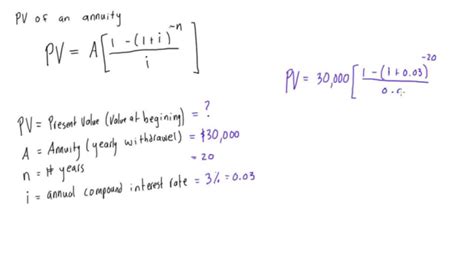 PV of an annuity
PV = A[ 1 - (1+i)^-n / i ]
PV = 30,000 [ 1 - (1+0.03)^-20 / 0.
PV = Present Value (Value at begining) = ?
A = Annuity (yearly withdrawel) = $30,000
n = # years = 20
i = annual compound interest rate = 3% = 0.03